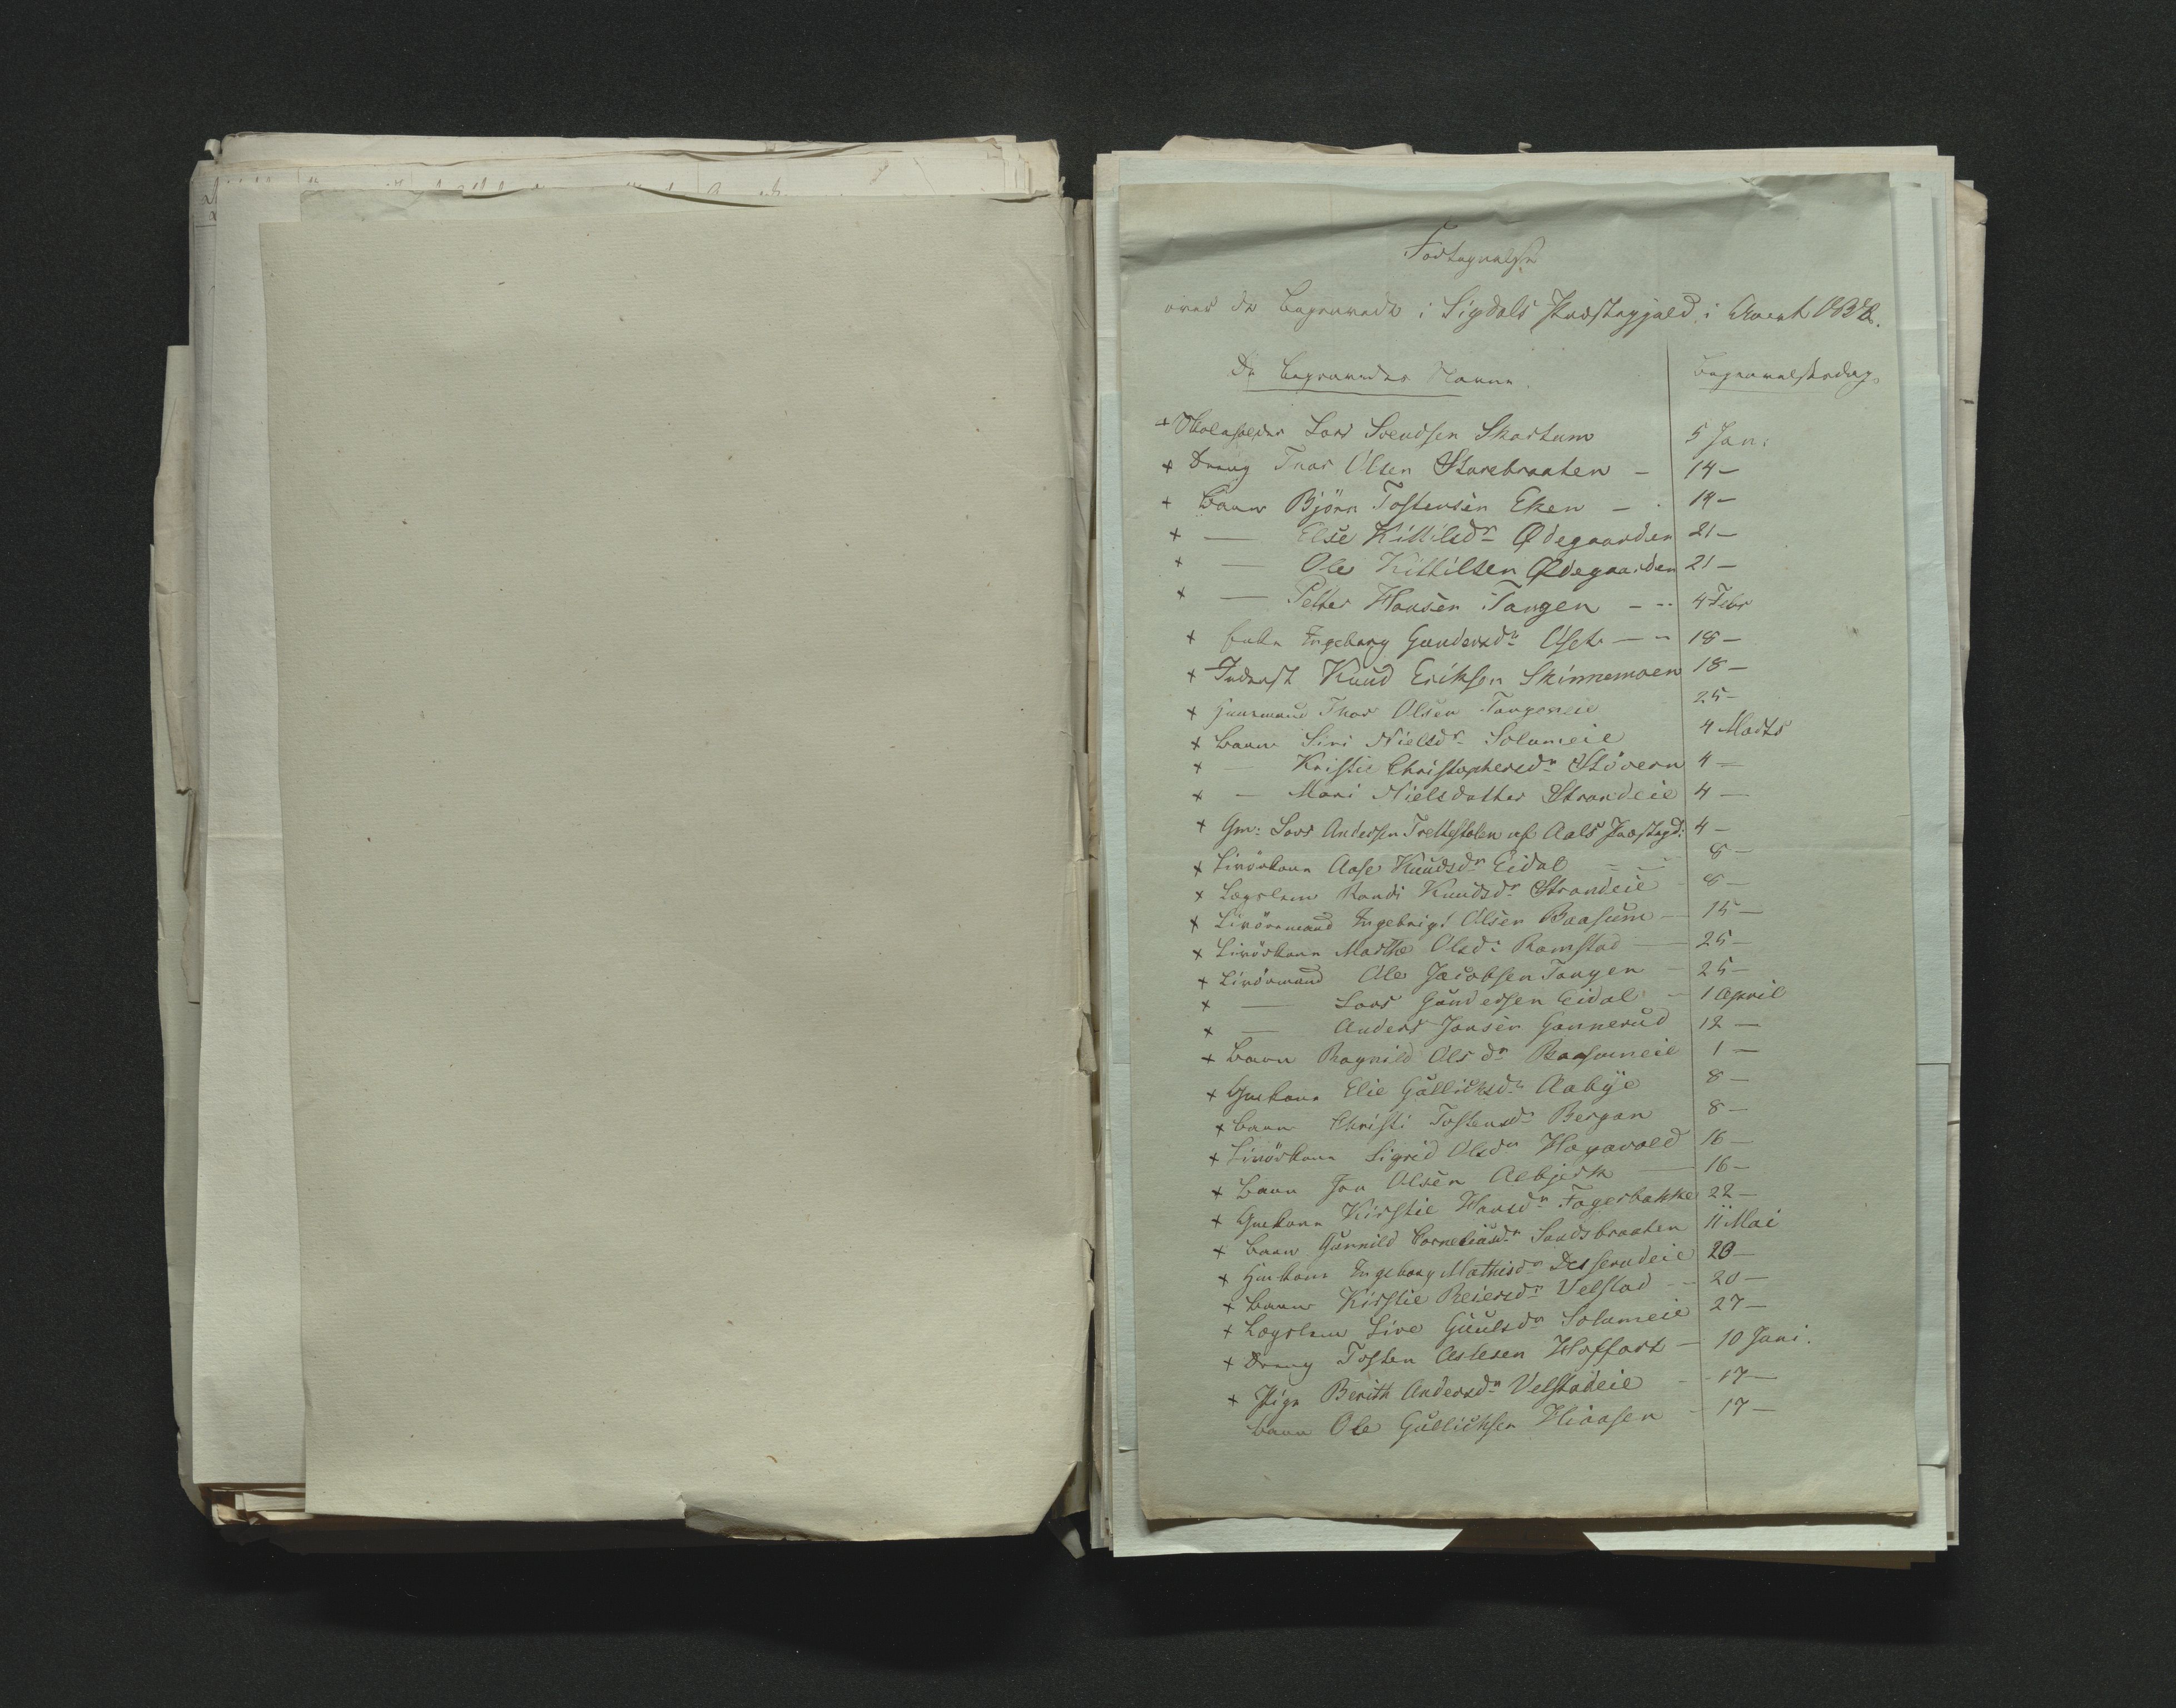 Fortegnelse
over de Begravede i Sigdals Præstegjeld i Aaret 1838.
De Begravedes Navne. Begravelsesdag.
+ Skoleholder Lars Svendsen Skartum 5 Jan:
+ Dreng Thor Olsen Storebraaten - 14 -
+ Barn Björn Tostensen Eken - 14 -
+ — Else Kittilsdr Ødegaarden 21 -
+ — Ole Kittilsen Ødegaarden 21 -
+ — Petter Hansen Tangen - - 4 Febr
+ Enke Ingeborg Gundersdr - - 18 -
+ Inderst Knud Eriksen Skinnemoen 18 -
+ Huusmand Thor Olsen Tangeneie 25 -
+ Barn Siri Nielsdr Solumeie 4 Marts
+ — Kristie Christophersdr Stövern 4 -
+ — Mari Nielsdatter Strandeie 4 -
+ Gm: Lars Andersen Trettestolen af Aals Præstegd: 4 -
+ Livörkone Aase Knudsdr Eidal - - 8 -
+ Lægslem Randi Knudsdr Strandeie - 8 -
+ Livörmand Ingebrigt Olsen Baasum - 15 -
+ Livörkone Marthe Olsdr Ramstad - 25 -
+ Livörmand Ole Jacobsen Tangen - 25 -
+ — Lars Gundersen Eidal - 1 April
+ — Anders Jonsen Gannerud 12 -
+ Barn Ragnild Olsdr Baasumeie 1 -
+ Gmkone Elie Gullichsdr Aabye 8 -
+ Barn Christi Tostensdr Bergan 8 -
+ Livörkone Sigrid Olsdr Hagavold 16 -
+ Barn Jon Olsen - 16 -
+ Gmkone Kirstie Hansdr Fagerbakke 22 -
+ Barn Gunnild Corneliusdr Sandsbraaten 11 Mai
+ Hmkone Ingeborg Mathisdr Desserudeie 20 -
+ Barn Kirstie Reiersdr Velstad - - 20 -
+ Lægslem Live Guulsdr Solumeie 27 -
+ Dreng Tosten Aslesen Hoffart - 10 Juni.
+ Pige Berith Andersdr Velstadeie - 17 -
Barn Ole Gullichsen Hiaasen - 17 -